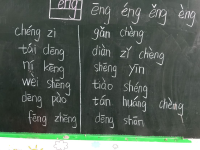 eng
ēng éng ěng èng
chéng zi
tái dēng
ní kēng
wèi shēng
dēng pào
fēng zhēng
gǎn chèng
diàn zǐ chèng
shēng yīn
tiào shéng
tán huáng chèng
dēng shān